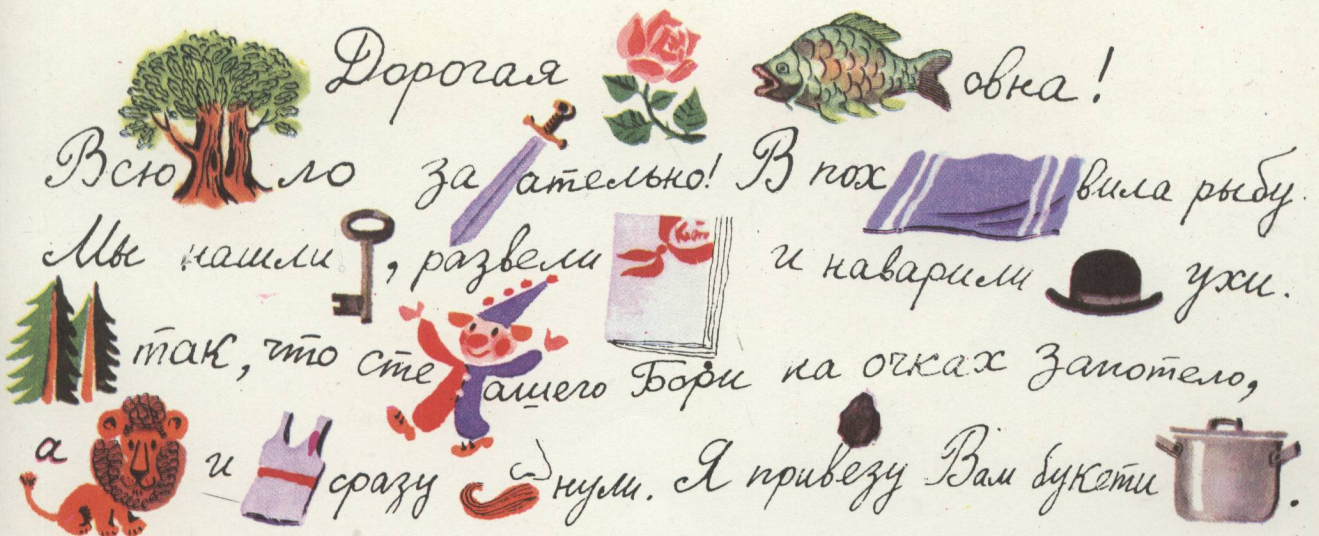 Дорогая овна!
Всю ло за ательно! В пох вила рыбу.
Мы нашли , развели и наварили ухи.
так, что сте ашего Бори на очках запотело,
а и сразу нули. Я привезу Вам букети .